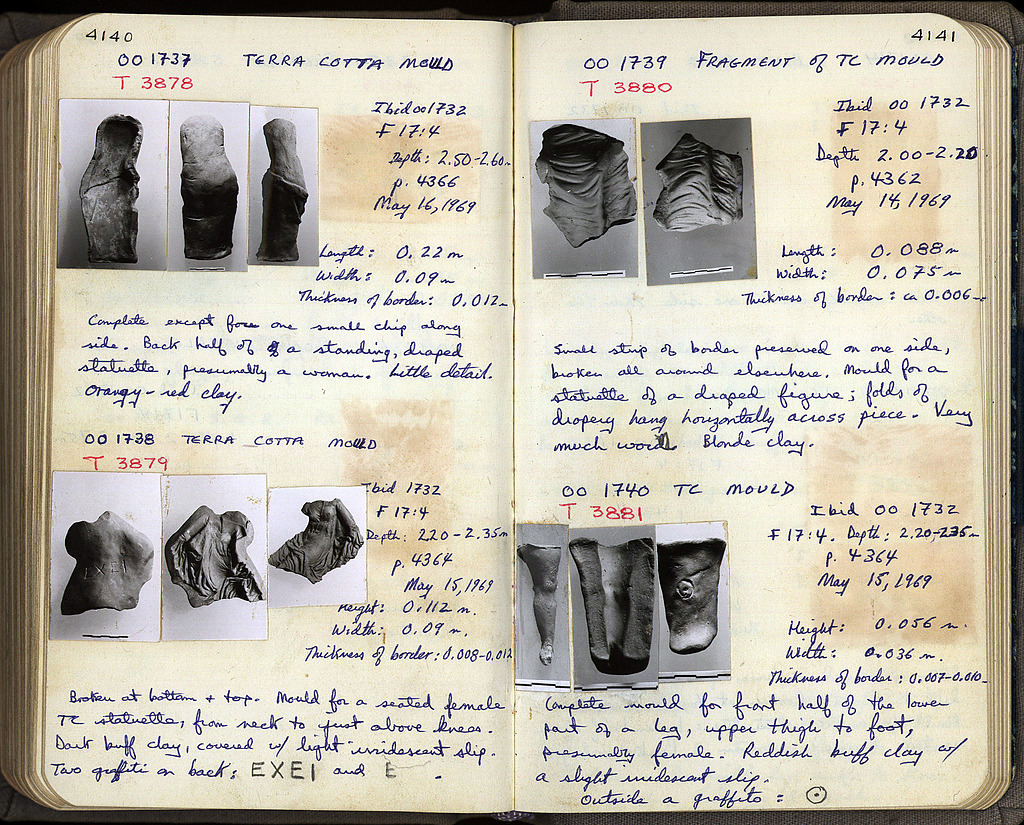 4140
00 1737 TERRA COTTA MOULD
T 3878
Ibid 00 1732
F 17:4
Depth: 2.50-2.60m
p. 4366
May 16, 1969
Length: 0.22 m
Width: 0.09 m
Thickness of border: 0.012
Complete except for one small chip along
side. Back half of a standing, draped
statuette, presumably a woman. Little detail.
Orangy-red clay.
00 1738 TERRA COTTA MOULD
T 3879
Ibid 1732
F 17:4
Depth: 220-2.35m
p. 4364
May 15, 1969
Height: 0.112 m.
Width: 0.09 m.
Thickness of border: 0.008-0.012
EXEI
Broken at bottom + top. Mould for a seated female
TC statuette, from neck to just above knees.
Dark buff clay, covered w/ light irridescent slip.
Two graffiti on back: EXEI and E .
4141
00 1739 FRAGMENT of TC MOULD
T 3880
Ibid 00 1732
F 17:4
Depth 2.00-2.20
p. 4362
May 14, 1969
Length: 0.088 m
Width: 0.075 m
Thickness of border: ca 0.006
Small strip of border preserved on one side,
broken all around elsewhere. Mould for a
statuette of a draped figure; folds of
drapery hang horizontally across piece. Very
much Blonde clay.
00 1740 TC MOULD
T 3881
Ibid 00 1732
F 17:4. Depth: 2.20-2.35m
p. 4364
May 15, 1969
Height: 0.056 m.
Width: 0.036 m.
Thickness of border: 0.007-0.010
Complete mould for front half of the lower
part of a leg, upper thigh to foot,
presumably female. Reddish buff clay w/
a slight iridescent slip.
Outside a graffito: ⊙